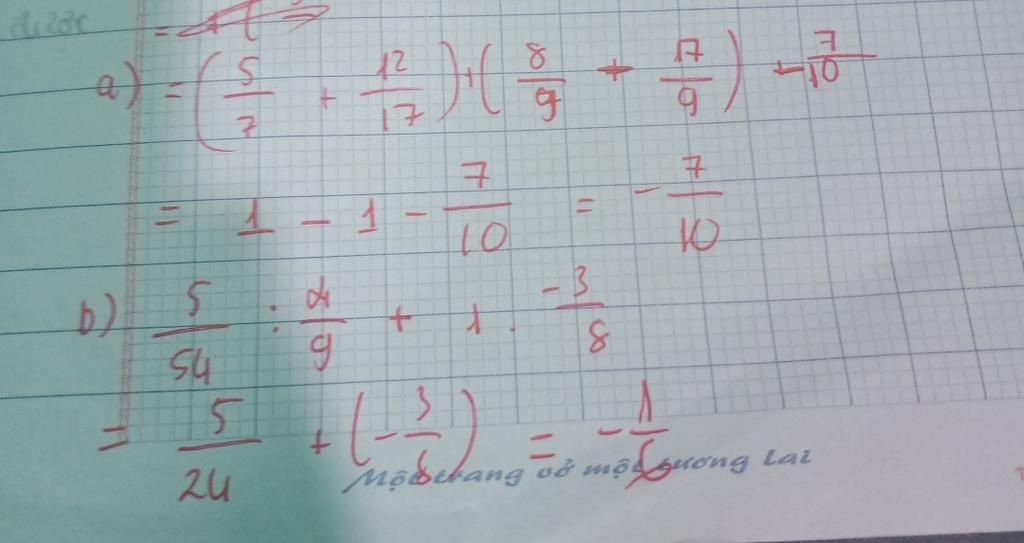 được
a) = (5/7 + 12/17) + (8/9 + 17/9) - 7/10
= 1 - 1 - 7/10 = - 7/10
b) 5/54 : 4/9 + 1 . -3/8
= 5/24 + (- 3/8) = - 1/6
Một trang vở một tương lai